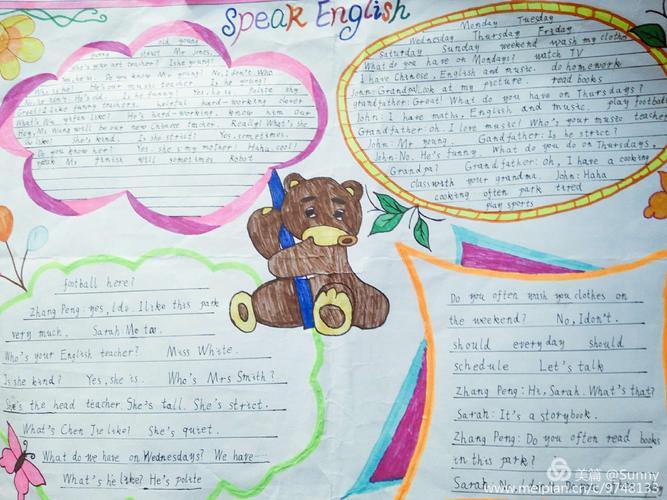 Speak English
old young
funny strict Mr Jones.
she's our art teacher? Is he young?
Yes, he is. Do you know Mr Young? No, I don't. Who
is he? He's our music teacher. Is he
Yes, he is. Polite shy
Great! I like funny teachers. helpful hard-working clever
What's Wu Yifan like? He's hard-working. know him Our
Hey, Ms Wang will be our new Chinese teacher. Really? What's she
like? She's kind. Is she strict? Yes, sometimes.
Do you know her? Yes she is my mother! Haha, cool!
speak Ms finish will sometimes Robot
Monday Tuesday
Wednesday Thursday Friday
Saturday Sunday weekend wash my clothes
What do you have on Mondays? watch TV
I have Chinese, English and music. do homework
John: Grandpa! Look at my picture. read books
grandfather: Great! What do you have on Thursdays?
John: I have maths, English and music. play football
Grandfather: oh. I love music! Who's your music teacher
John: Mr young. Gandfather: Is he strict?
John: No. He's funny What do you do on Thursdays,
Grandpa? Grandfather: oh, I have a cooking
class with your grandma. John: Haha
cooking often park tired
play sports
football here?
Zhang Peng: yes, I do. I like this park
very much. Sarah: Me too.
Who's your English teacher? Miss White.
Is she kind? Yes, she is. Who's Mrs Smith?
She's the head teacher. She's tall. She's strict.
What's Chen Jie like? She's quiet.
What do we have on Wednesdays? We have…
What's he like? He's polite
Do you often wash you clothes on
the weekend? No, I don't.
should every day should
schedule Let's talk
Zhang Peng: Hi, Sarah. What's that?
Sarah: It's a storybook.
Zhang Peng: Do you often read books
in this park?
Sarah
美篇 @Sunny
www.meipian.cn/c/9748133